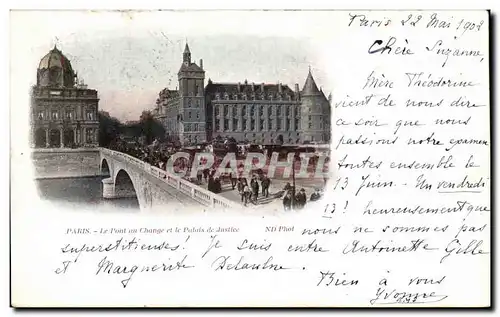 Paris 22 Mai 1902
Chère Suzanne,
Mère Théodorine
vient de nous dire
ce soir que nous
passions notre examen
toutes ensemble le
13 Juin. - Un vendredi
13! heureusement que
nous ne sommes pas
superstitieuses! Je suis entre Antoinette Gille
et Marguerite Delaulne.
Bien à vous
Yvonne
PARIS. - Le Pont au Change et le Palais de Justice
ND Phot
CPRPHIL